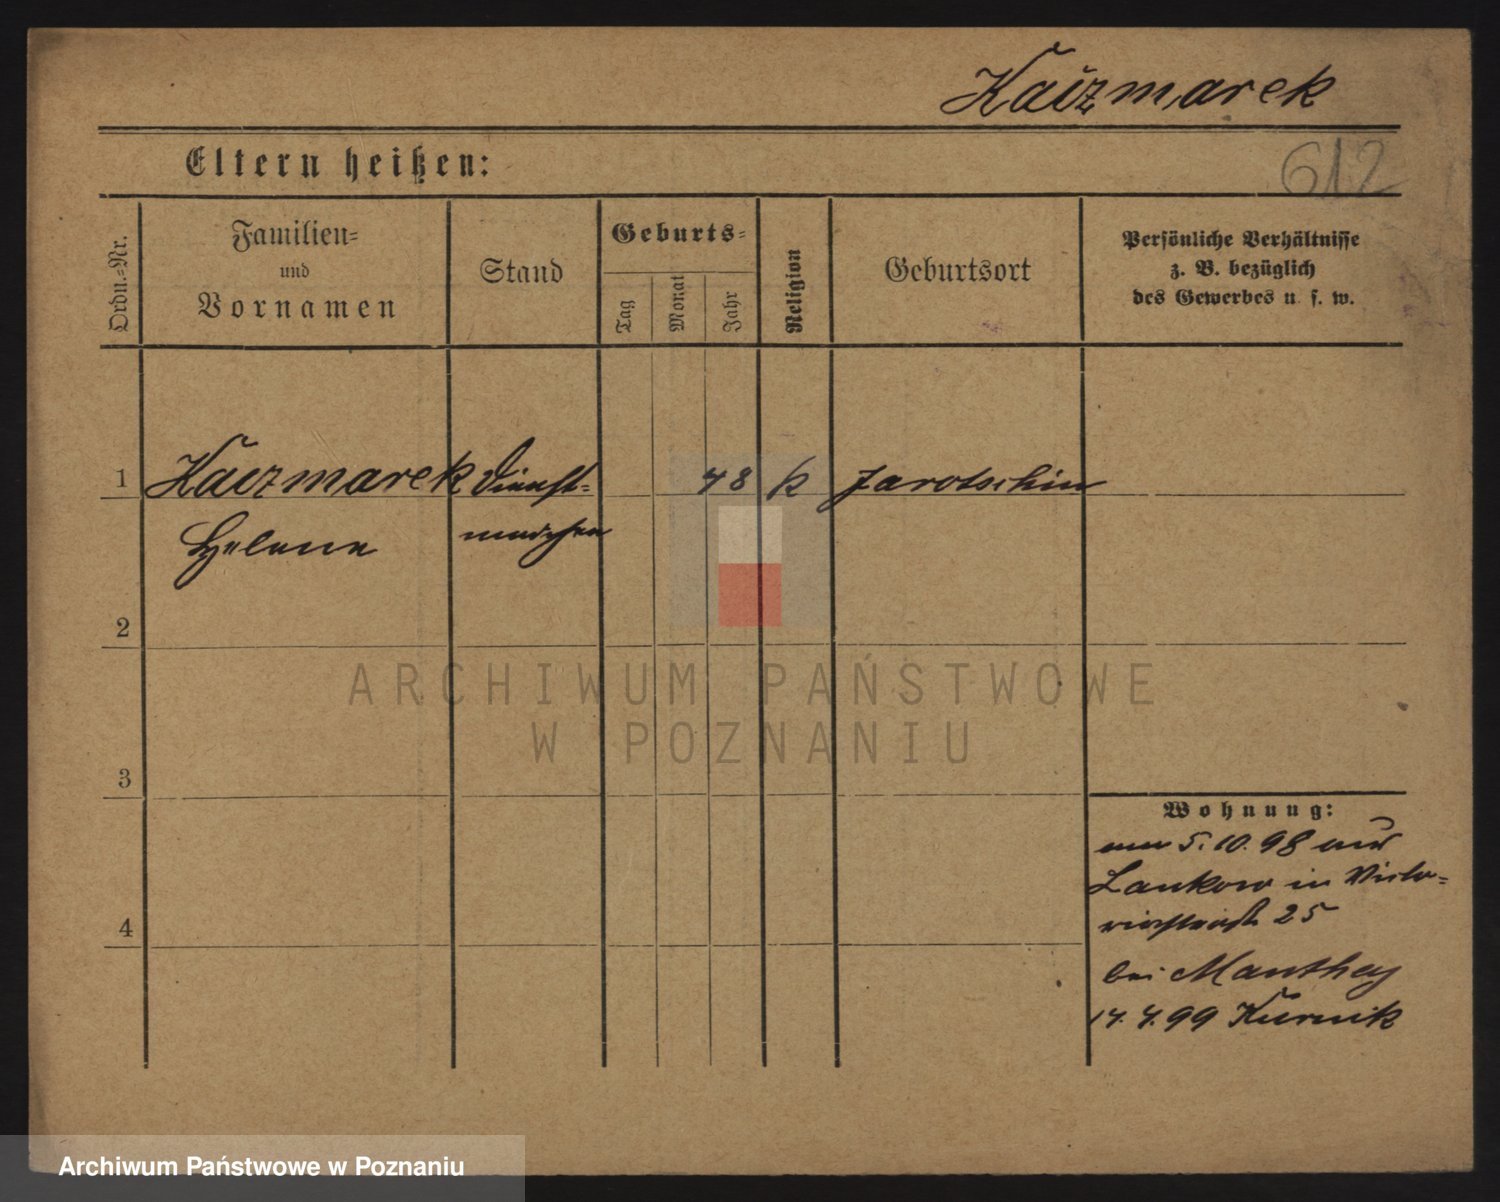 Kaczmarek
612
Eltern heißen:
Ordn.=Nr.
Familien=
und
Vornamen
Stand
Geburts=
Tag
Monat
Jahr
Religion
Geburtsort
Persönliche Verhältnisse
z. B. bezüglich
des Gewerbes u. s. w.
1 Kaczmarek Dienst= 48 k Jarotschin
Helene mädchen
2
ARCHIWUM PAŃSTWOWE
W POZNANIU
3
Wohnung:
5.10.98 aus
in Victo=
25
4
bei Manthey
99 Kurnik
Archiwum Państwowe w Poznaniu